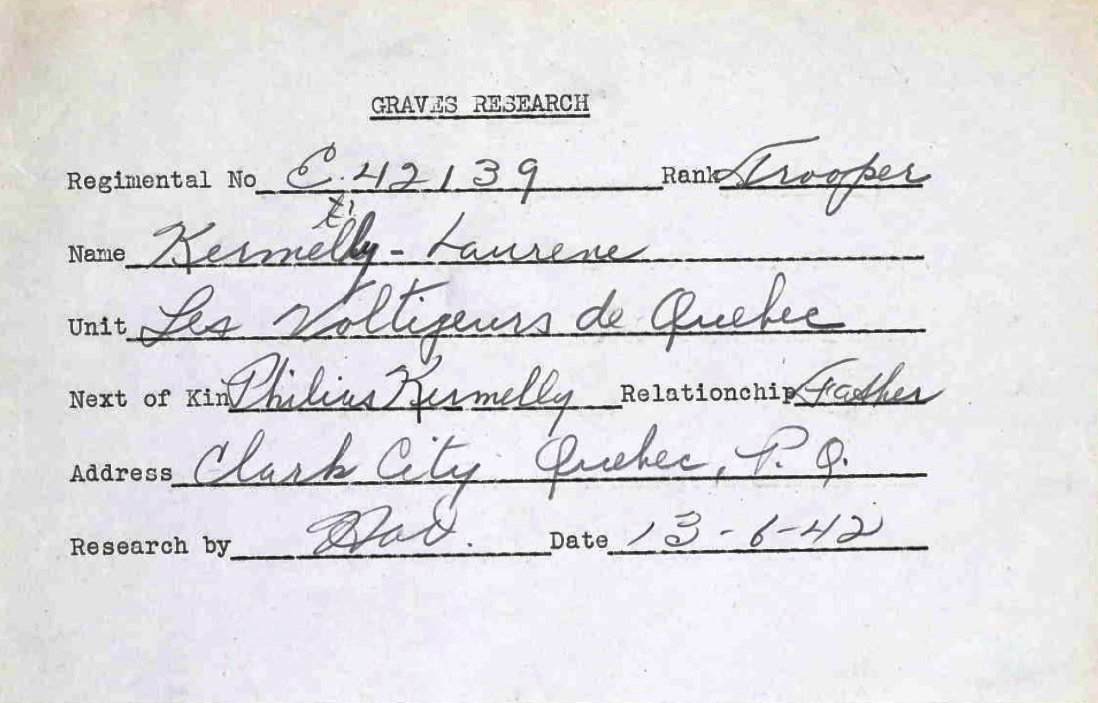 GRAVES RESEARCH
Regimental No C.42139 Rank Trooper
Name Kermelly - Laurene
Unit Les Voltigeurs de Quebec
Next of Kin Philius Kermelly Relationchip Father
Address Clark City Quebec, P. Q.
Research by Date 13-6-42